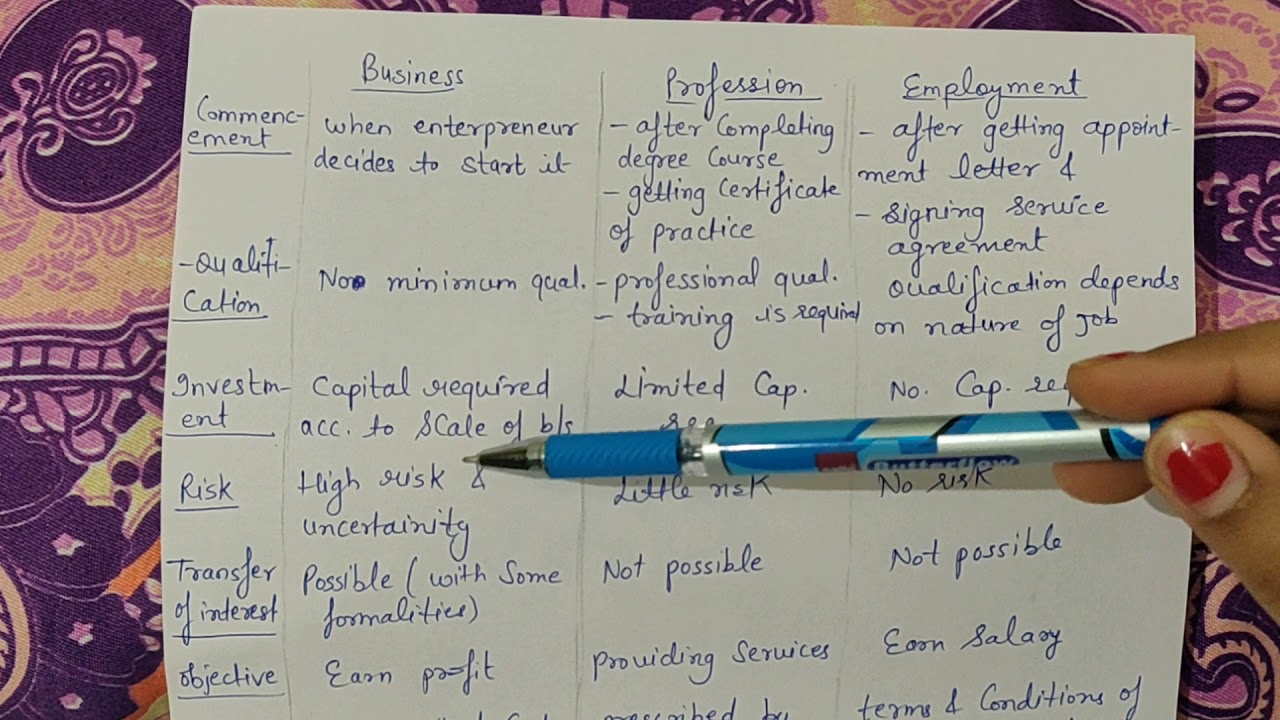 Business
Profession
Employment
Commenc-
ement
when enterpreneur
decides to start it
- after Completing
degree Course
- getting Certificate
of practice
- after getting appoint-
ment letter &
- signing service
agreement
-Qualifi-
Cation
No minimum qual.
- professional qual.
- training is required
Qualification depends
on nature of Job
Investm-
ent
Capital required
acc. to Scale of b/s
Limited Cap.
No. Cap.
Risk
High risk &
uncertainity
Little risk
No risk
Transfer
of interest
Possible (with Some
formalities)
Not possible
Not possible
objective
Earn profit
Providing Services
Earn Salary
prescribed by
terms & Conditions of